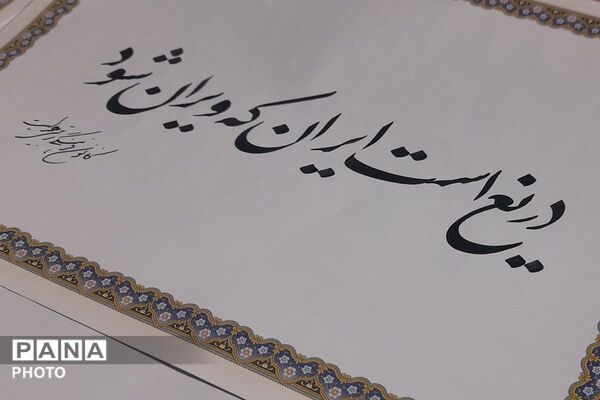 دریغ است ایران که ویران شود
PANA
PHOTO